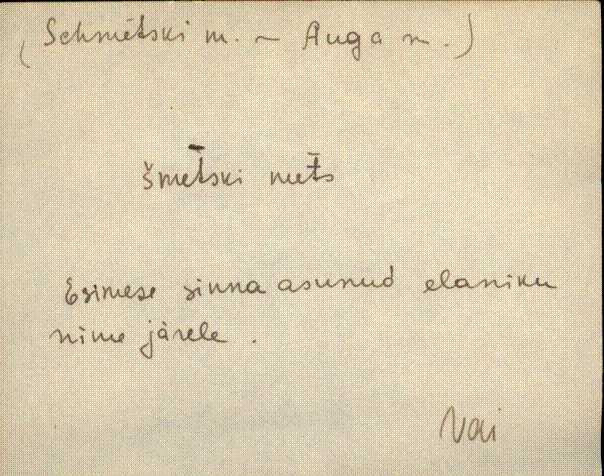 (Schmētski m. ~ Auga m.)
šmēt̄ski met̄s
Esimese sinna asunud elaniku
nime järele.
Vai